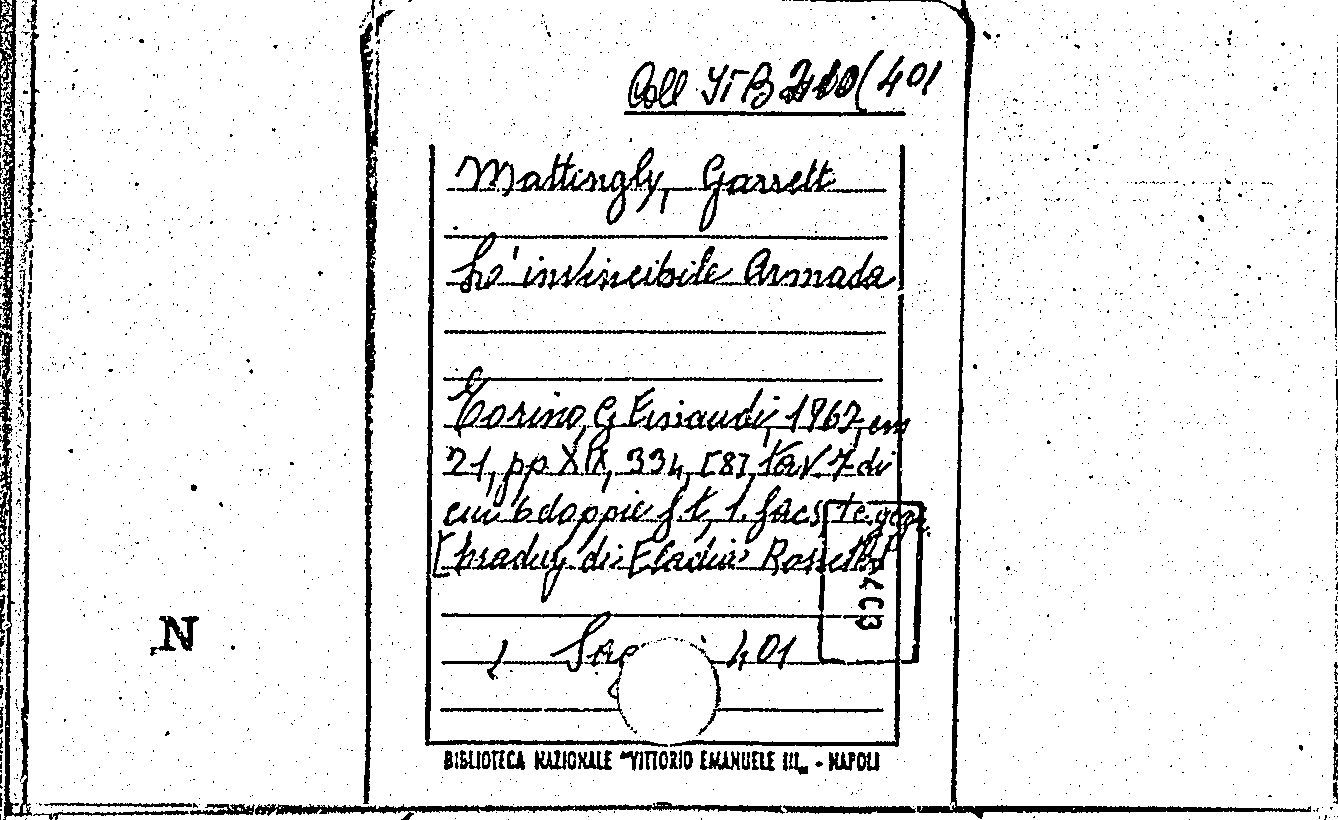 Coll ITB 210(401
Mattingly, Garrett
L'invincibile Armada
Torino, G Einaudi, 1967, cm
21, pp XIX, 334, [8], tav 7 di
cui 6 doppie f. t., 1. facs, tc. geogr.
[traduz di Eladia Rossetto]
( 401
4C3
N
BIBLIOTECA NAZIONALE "VITTORIO EMANUELE III„ - NAPOLI